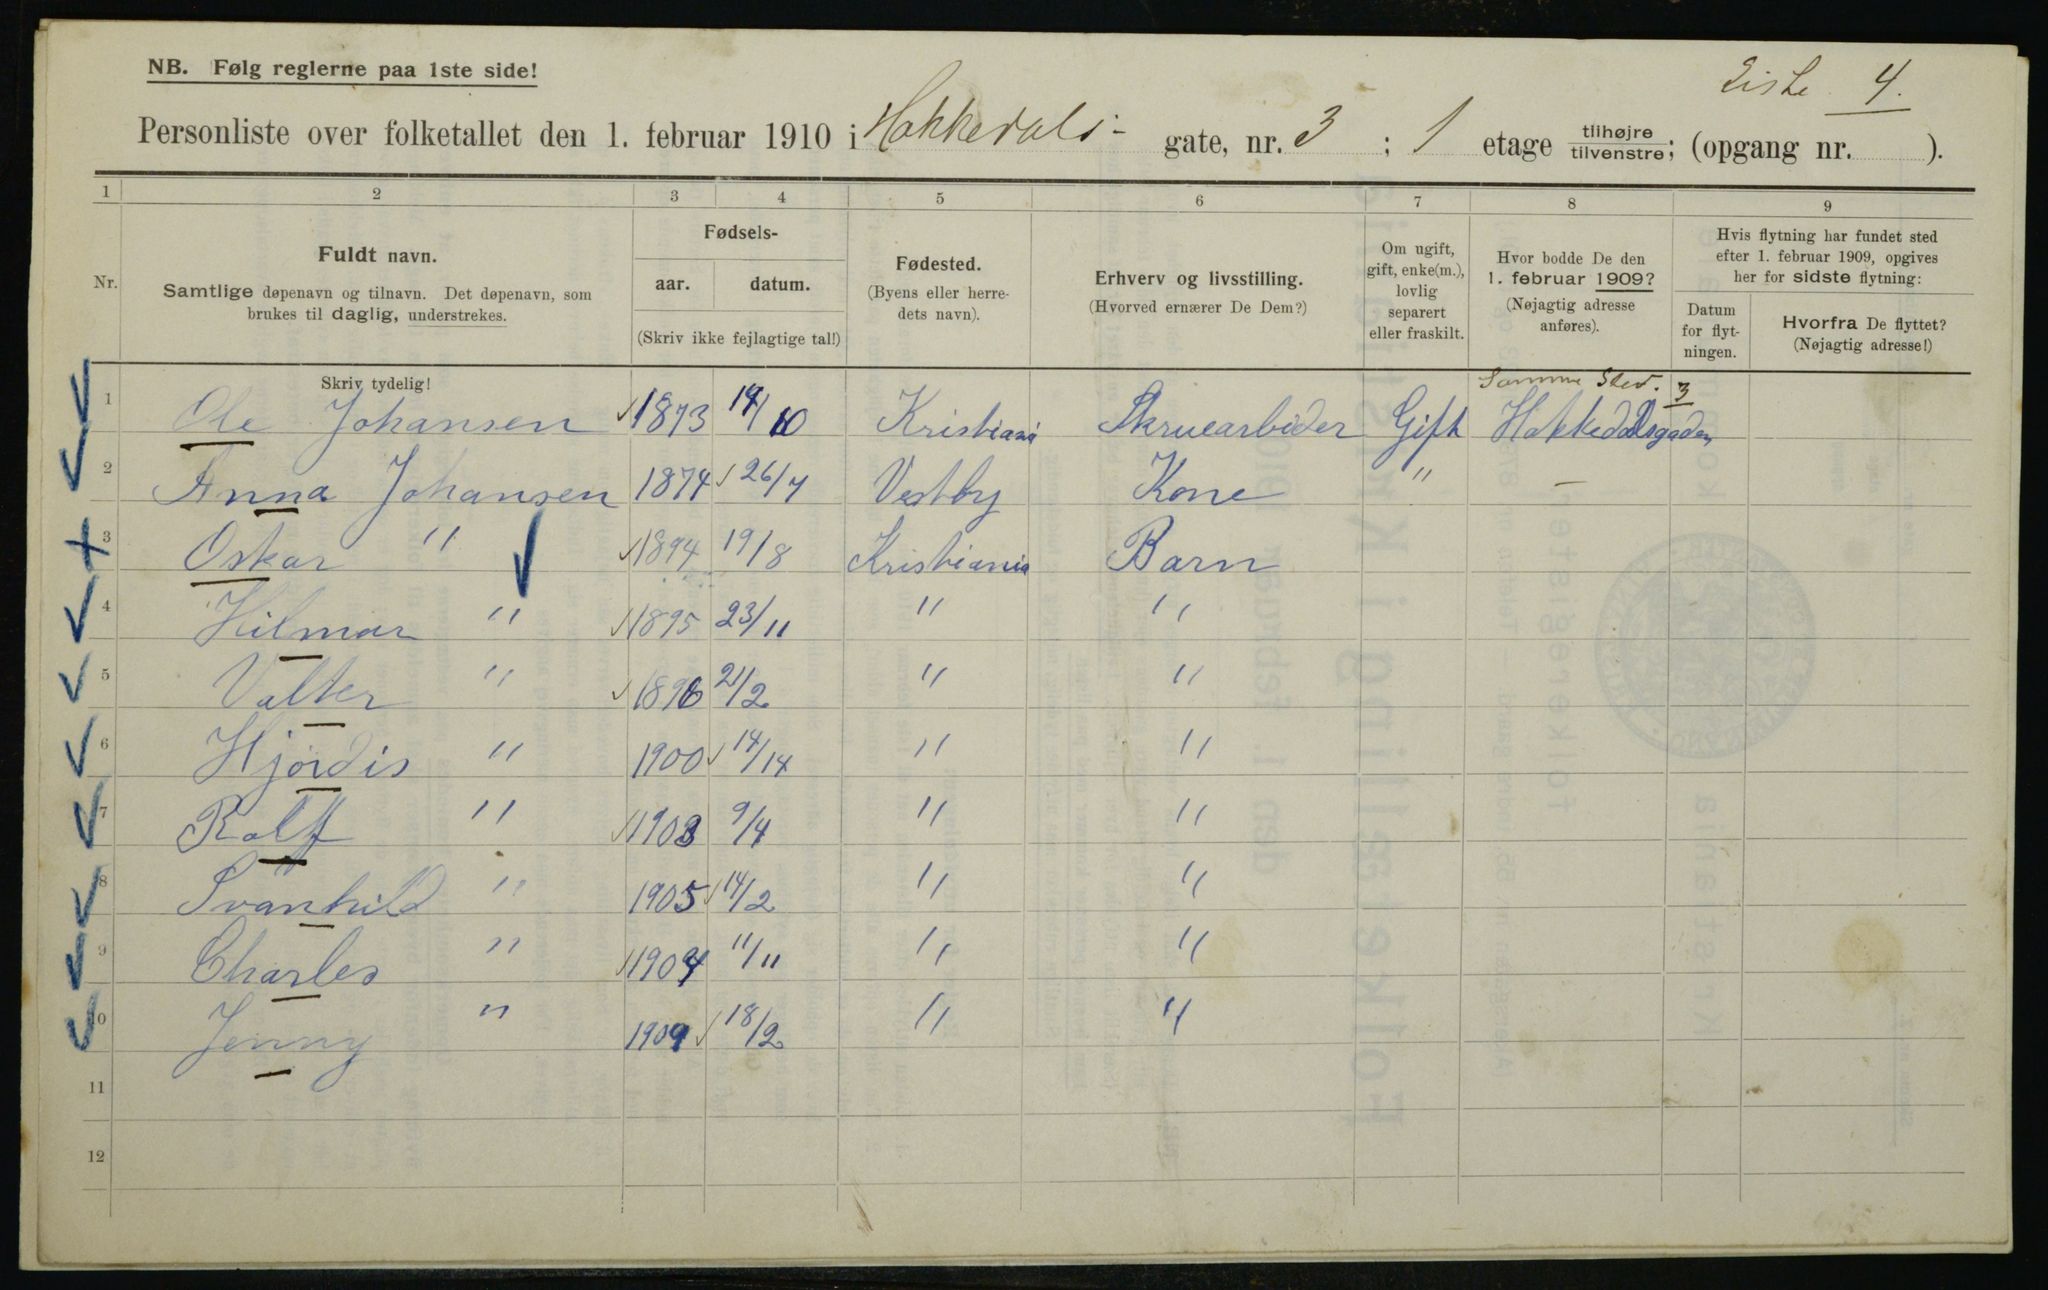 Liste 4.
NB. Følg reglerne paa 1ste side!
Personliste over folketallet den 1. februar 1910 i Hakkedals- gate, nr. 3 ; 1 etage tilhøjre/tilvenstre; (opgang nr. ).
1 2 3 4 5 6 7 8 9
Nr.
Fuldt navn.
Samtlige døpenavn og tilnavn. Det døpenavn, som
brukes til daglig, understrekes.
Skriv tydelig!
Fødsels-
aar. datum.
(Skriv ikke fejlagtige tal!)
Fødested.
(Byens eller herre-
dets navn).
Erhverv og livsstilling.
(Hvorved ernærer De Dem?)
Om ugift,
gift, enke(m.),
lovlig
separert
eller fraskilt.
Hvor bodde De den
1. februar 1909?
(Nøjagtig adresse
anføres).
Hvis flytning har fundet sted
efter 1. februar 1909, opgives
her for sidste flytning:
Datum
for flyt-
ningen.
Hvorfra De flyttet?
(Nøjagtig adresse!)
Samme Sted. 3
1 Ole Johansen 1873 /10 Kristiania Skruearbeider Gift Hakkedalsgaden
2 Anna Johansen 1874 26/7 Vestby Kone " –
3 Oskar " 1894 19/8 Kristiania Barn
4 Hilmar " 1895 23/11 " "
5 Valter " 1896 21/2 " "
6 Hjördis " 1900 14/14 " "
7 Rolf " 1903 9/4 " "
8 Svanhild " 1905 14/2 " "
9 Charles " 11/11 " "
10 Jenny " 1909 18/2 " "
11
12